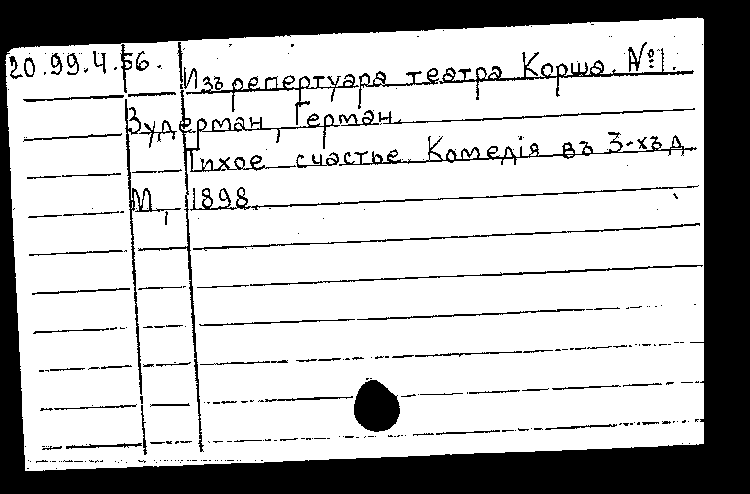 20.99.4.56.
Изъ репертуара театра Корша. №1.
Зудерман, Герман.
Тихое счастье. Комедія въ 3-хъ д.
М, 1898.